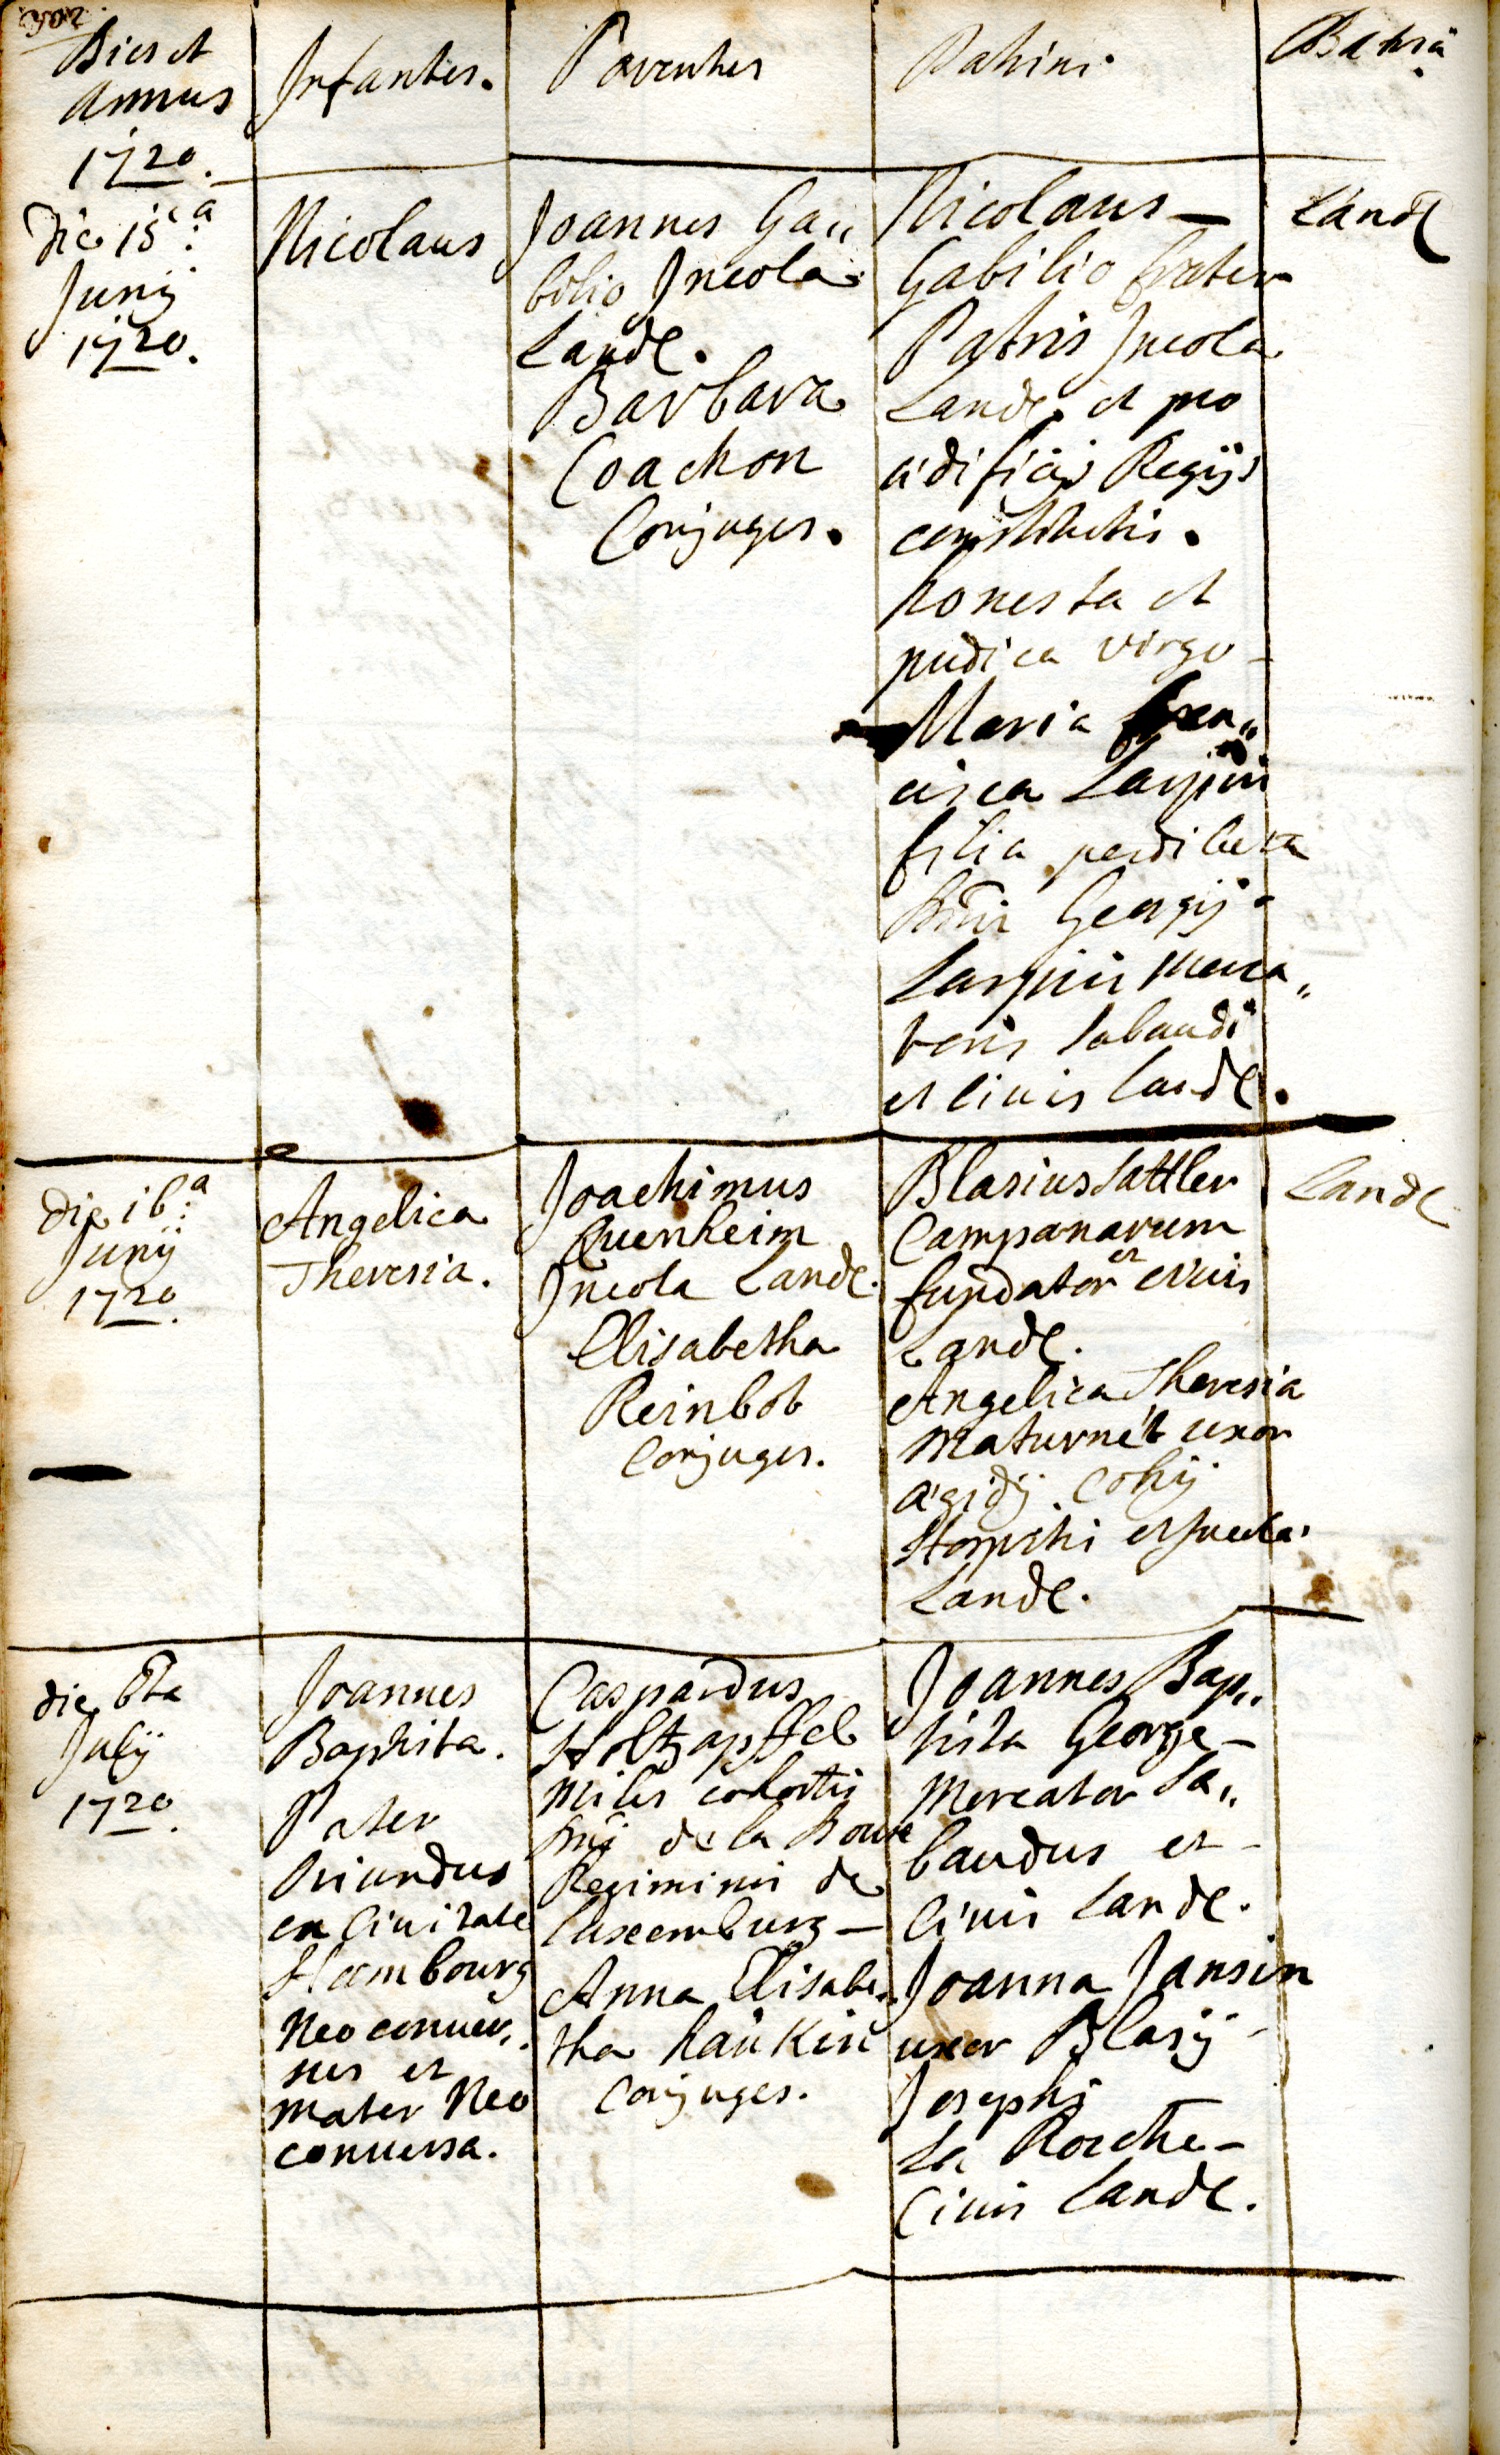 302.
Dies et
Annus
1720.
Infantes.
Parentes
Patrini.
Patria
die 15.a
Junij
1720.
Nicolaus
Joannes Ga„
bilio Incola
Landẽ.
Barbara
Coachon
Conjuges.
Nicolaus —
Gabilio frater
Patris Incola
Landẽ. et pro
ædificijs Regijs
constitutis.
honesta et
pudica virgo –
Maria Fran„
cisca
filia perdilecta
Georgij
merca„
toris Sabaudi
et Civis Landẽ.
Landẽ
die 16.a
Junij
1720.
Angelica
Theresia.
Joachimus
Quenheim
Incola Landẽ.
Elisabetha
Reinbolt
Conjuges.
Blasius Sattler
Campanarum
fundator et civis
Landẽ.
Angelica Theresia
Maturnét uxor
ægidij
et Incola
Landẽ.
Landẽ
die 6ta
July
1720.
Joannes
Baptista.
Pater
Oriundus
ex Civitate
Neo conver„
sus et
Mater Neo
conversa.
Caspardus
Holtzapffel
Miles cohortis
de la
Regiminis de
Luxemburg —
Anna Elisabe„
tha
Conjuges.
Joannes Bap„
tista George –
Mercator Sa„
baudus et –
Civis Landẽ.
Joanna Jansin
uxor Blasij –
Josephi
La Roche –
Civis Landẽ.